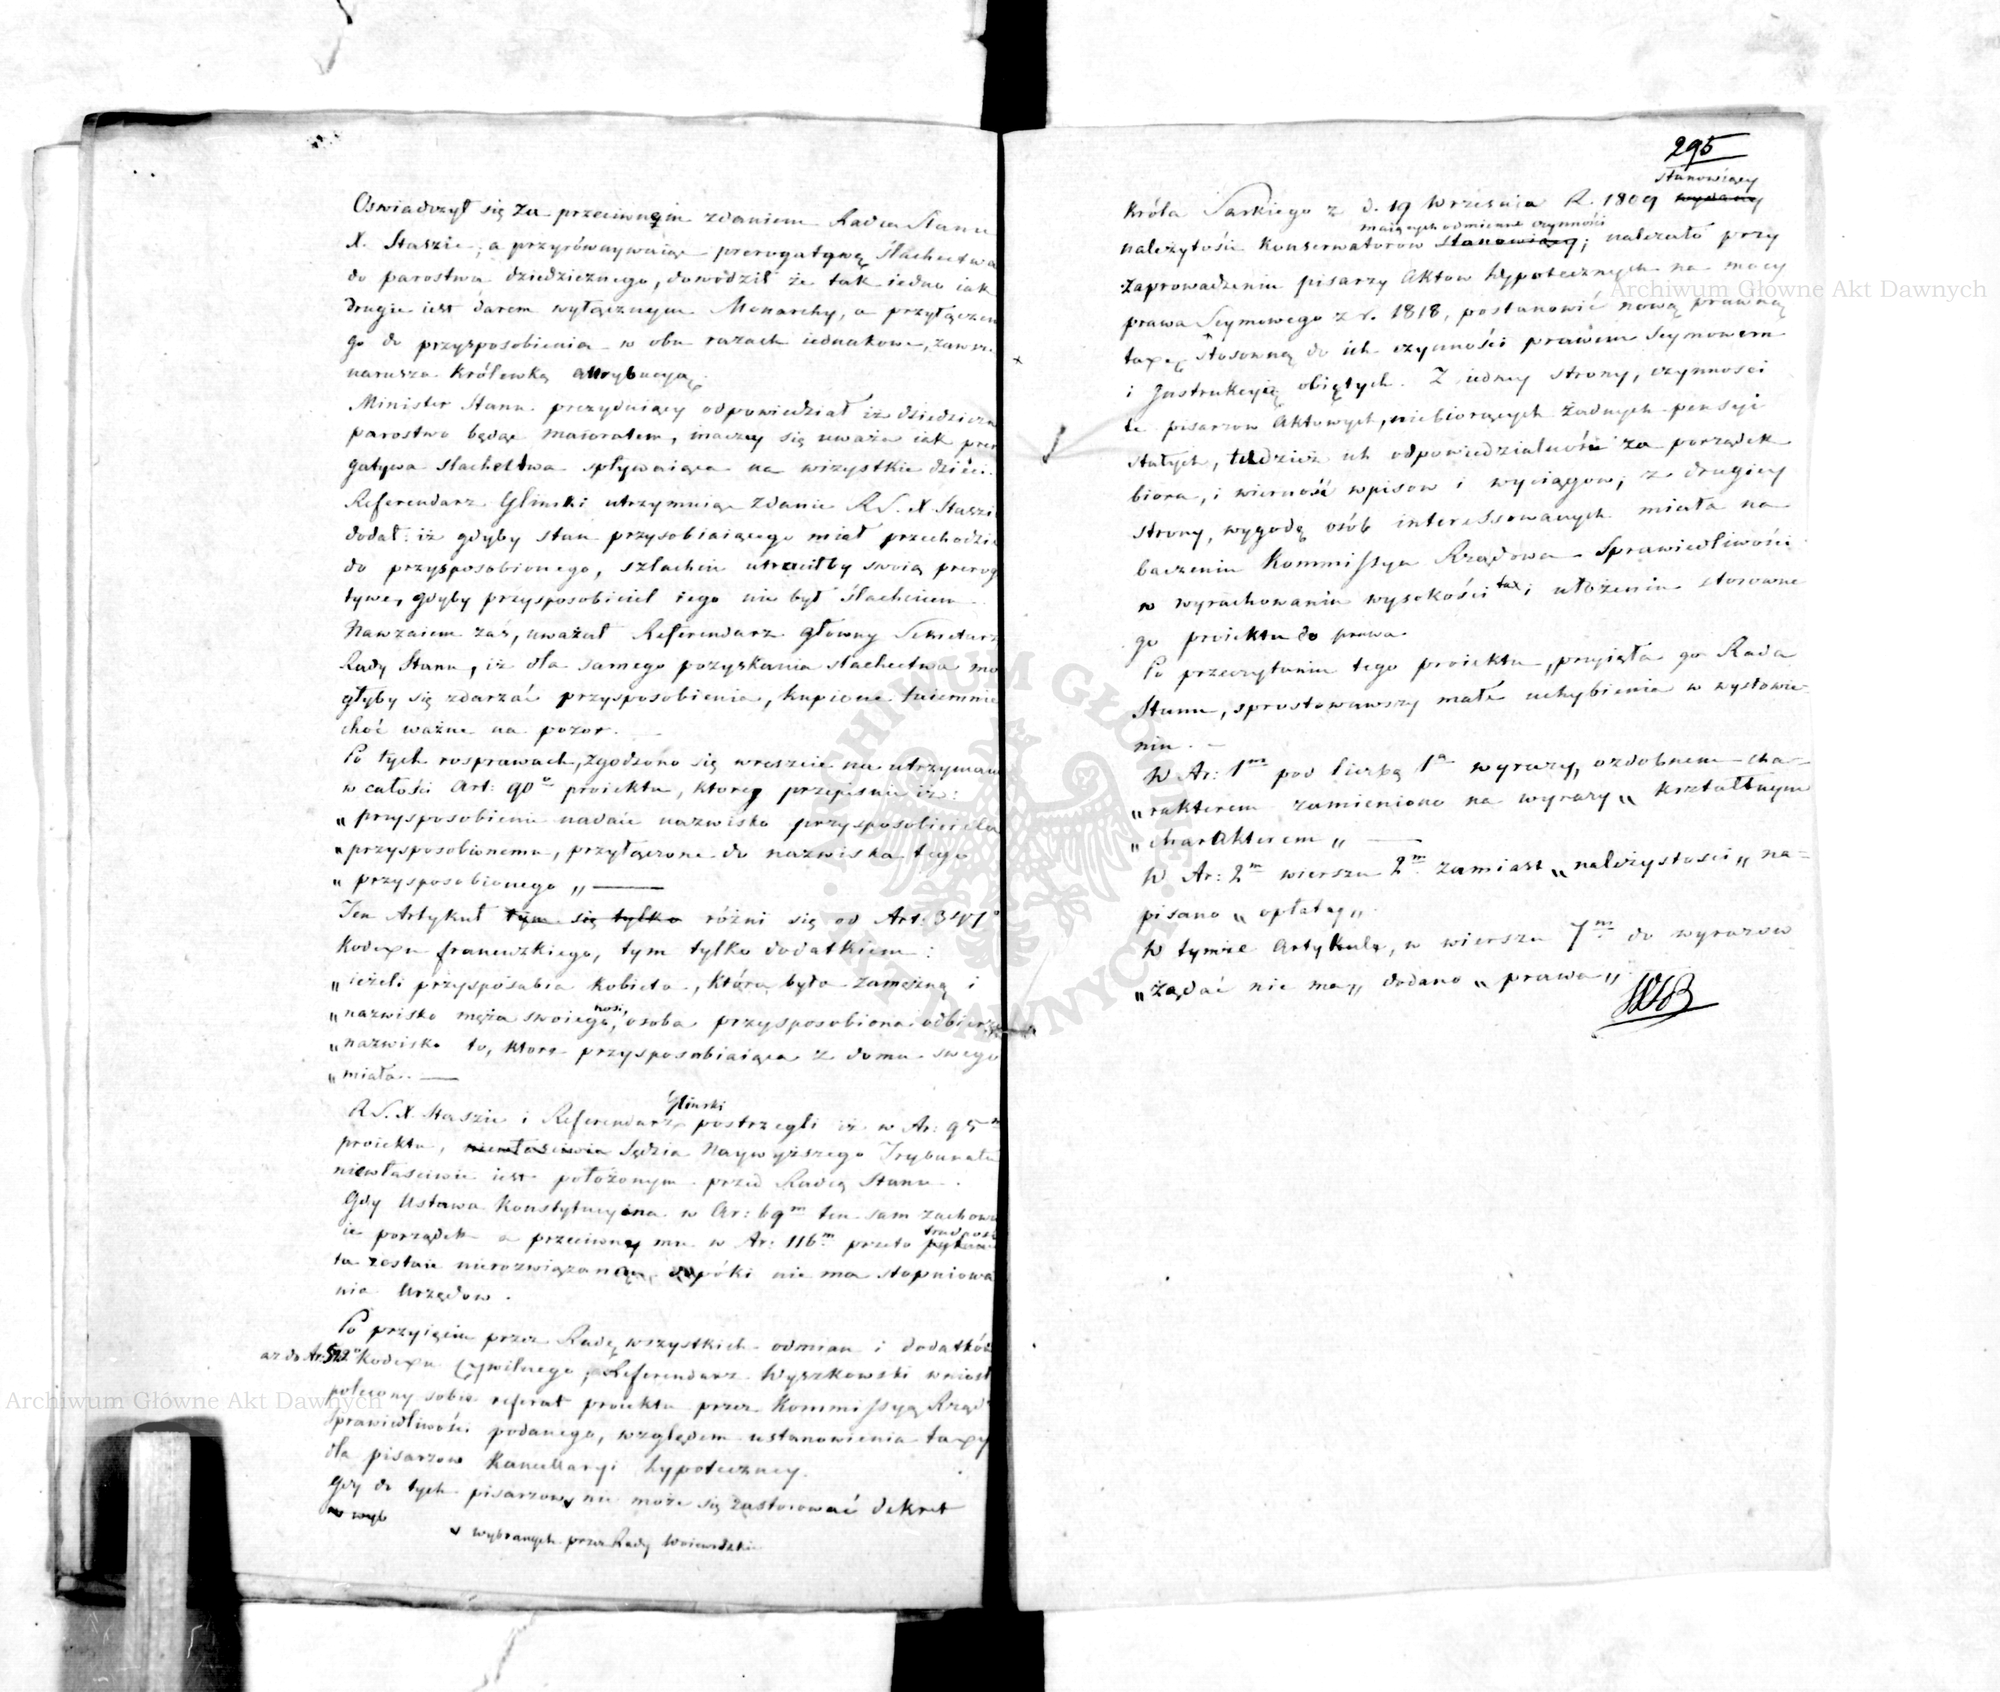 Oswiadczył się za przeciwnym zdaniem Radca Stanu
X. Staszic; a przyrównywaiąc prerogatywę Slachectwa
do parostwa dziedzicznego, dowodził że tak iedno iak
drugie iest darem wyłącznym Monarchy, a przyłączen
go do przysposobienia w obu razach iednakowe,
narusza Królewską attrybucyą.
Minister Stanu prezyduiący odpowiedział iż dziedziczn
parostwo będąc maioratem, inaczey się uważa iak prer
gatywa slachectwa spływaiąca na wszystkie dzieci.
Referendarz Glinski utrzymuiąc zdanie R.S. X Staszi
dodał: iż gdyby stan przysobiaiącego miał przechodzi
do przysposobionego, szlachcic utraciłby swoią prerog
tywę, gdyby przysposobiciel iego nie był Slachcicem.
Nawzaiem zaś, uważał Referendarz główny Sekretarz
Rady Stanu, iż dla samego pozyskania slachectwa mo
głyby się zdarzać przysposobienia, kupione taiemnie
choć ważne na pozor.
Po tych rosprawach, zgodzono się wreszcie na utrzyman
w całości Art: 90o proiektu, ktorey przepisuie iż:
„ przysposobienie nadaie nazwisko przysposobiciela
„ przysposobionemu, przyłączone do nazwiska tego
„ przysposobionego „ —
Ten Artykuł tym się tylko różni się od Art: 347o
Kodexu francuzkiego, tym tylko dodatkiem:
„ ieżeli przysposabia kobieta, która była zamężną i
„ nazwisko męża swoiego nosi, osoba przysposobiona odbierze
„ nazwisko to, ktore przysposabiaiąca z domu swego
„ miała. —
R.S. X. Staszic i Referendarz Glinski postrzegli iż w Ar: 95m
proiektu, niewłaściwie Sędzia Naywyższego Trybunału
niewłaściwie iest położonym przed Radcą Stanu.
Gdy Ustawa Konstytucyina w Ar: 69m ten sam zachowu
ie porządek a przeciwny mu w Ar: 116m przeto trudność
ta zostaie nierozwiązaną, dopóki nie ma stopniowa
nia Urzędow.
Po przyięciu przez Radę wszystkich odmian i dodatków
aż do Ar: Kodexu Cywilnego, Referendarz Wyszkowski wniosł
polecony sobie referat proiektu przez Kommissyą Rząd
Sprawiedliwości podanego, względem ustanowienia taxy
dla pisarzow Kancellaryi hypoteczney.
gdy do tych pisarzow nie może się zastosować dekret
w wyb
v wybranych przez Rady Woiewodzkie
295
stanowiący
Króla Saskiego z d. 19 Września R. 1809 wydany
maiących odmienne czynności
należytości Konserwatorów stanowiący; należało przy
zaprowadzeniu pisarzy Aktow hypotecznych na mocy
prawa Seymowego z r. 1818, postanowić nową prawną
taxę stosowną do ich czynności prawem Seymowem
i Instrukcyią obiętych. Z iedney strony, czynności
te pisarzow Aktowych, niebiorących żadnych pensyi
stałych, tudzież ich odpowiedzialność za porządek
biora, i wierność wpisow i wyciągow; z drugiey
strony, wygodę osób interessowanych miała na
baczeniu Kommissya Rządowa Sprawiedliwości
w wyrachowaniu wysokości tax i ułożeniu stosowne
go proiektu do prawa.
Po przeczytaniu tego proiektu, przyięła go Rada
Stanu, sprostowawszy małe uchybienia w wysłowie-
niu. —
W Ar: 1m pod liczbą 1a wyrazy, ozdobnem cha-
„ rakterem zamieniono na wyrazy „ kształtnym
„ charakterem „ —
W Ar: 2m wierszu 2m zamiast „ należystości „ na=
pisano „ opłatę „.
W tymże Artykule, w wierszu 7m do wyrazow
„ żądać nie ma „ dodano „ prawa „